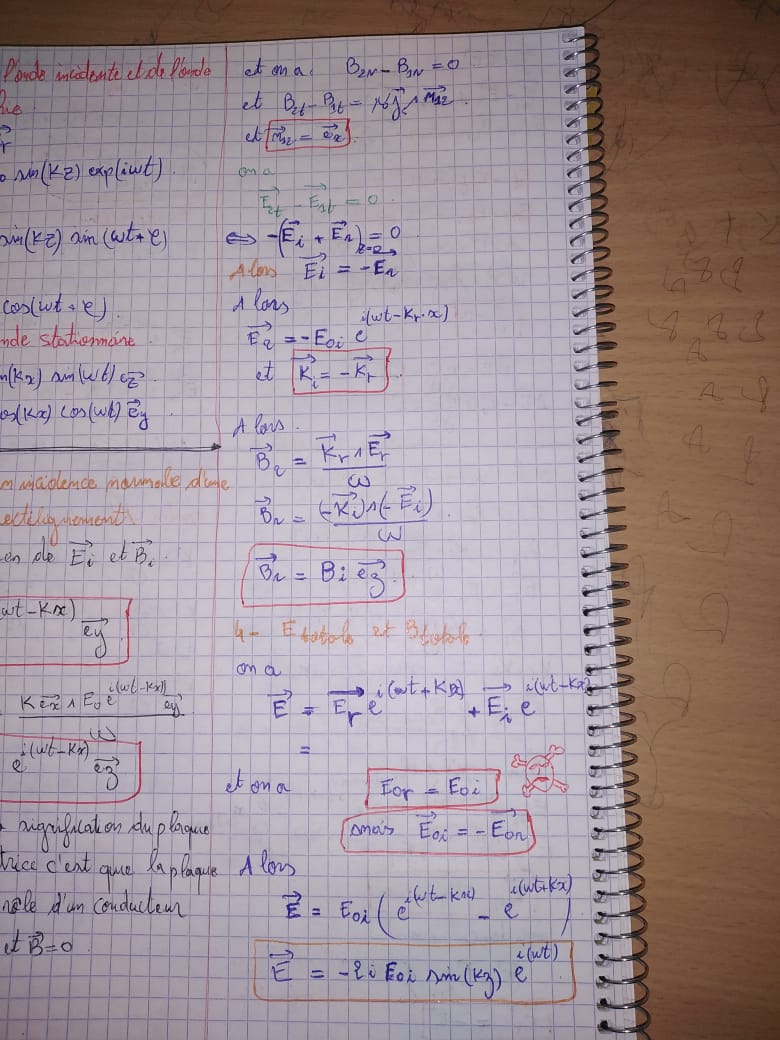 l'onde incidente et de l'onde
sin(KZ) exp(iωt)
sin(KZ) sin(ωt+φ)
cos(ωt+φ)
onde stationnaire
sin(Kx) sin(ωt) ez
cos(Kx) cos(ωt) ey
en incidence normale d'une
rectilignement
de Ei et Bi
ωt-Kx) ey
K ex ∧ E0 e^i(ωt-Kx) ey
ω
e^i(ωt-Kx) ez
signification du plaque
c'est que la plaque
rôle d'un conducteur
et B=0
et on a. B2N - B1N = 0
et B2t - B1t = μ0 js ∧ n12
et n12 = ex
on a
E2t - E1t = 0
⇔ -(Ei + Er) = 0
Alors Ei = -Er
Alors
Er = -E0i e^i(ωt-Kr·x)
et Ki = -Kr
Alors.
Br = Kr ∧ Er
ω
Br = (-Ki) ∧ (-Ei)
ω
Br = Bi ez
4- Etotale et Btotale
on a
E = Er e^i(ωt+Kx) + Ei e^i(ωt-Kx)
=
et on a E0r = E0i
mais E0i = -E0r
Alors
E = E0i ( e^i(ωt-Kx) - e^i(ωt+Kx) )
E = -2i E0i sin(Kz) e^i(ωt)